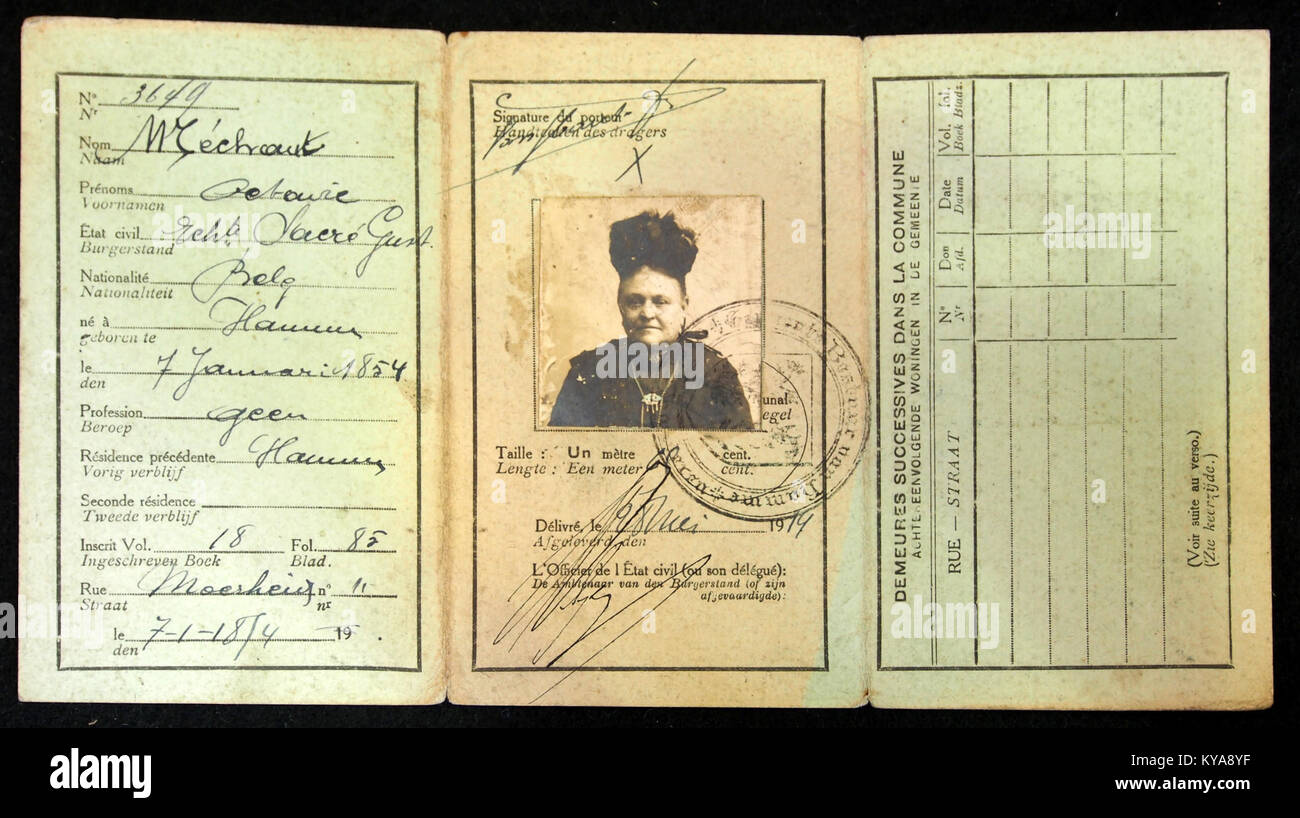 N° 3649
Nr
Nom
Naam
Prénoms Octavie
Voornamen
État civil
Burgerstand
Nationalité Belg
Nationaliteit
né à Hamme
geboren te
le 7 Januari 1854
den
Profession geen
Beroep
Résidence précédente Hamme
Vorig verblijf
Seconde résidence
Tweede verblijf
Inscrit Vol. 18 Fol. 85
Ingeschreven Boek Blad.
Rue n° 11
Straat nr
le 7-1-1854 19
den
Signature du porteur
Handteeken des dragers
X
unal
egel
Taille : Un mètre cent.
Lengte : Een meter cent.
Délivré, le 28 Mei 1914
Afgeleverd den
L'Officier de l'État civil (ou son délégué):
De Ambtenaar van den Burgerstand (of zijn
afgevaardigde):
DEMEURES SUCCESSIVES DANS LA COMMUNE
ACHTEREENVOLGENDE WONINGEN IN DE GEMEENTE
RUE — STRAAT
N°
Nr
Don
Afd.
Date
Datum
Vol. fol.
Boek Bladz.
(Voir suite au verso.)
(Zie keerzijde.)
alamy
alamy
Image ID: KYA8YF
www.alamy.com